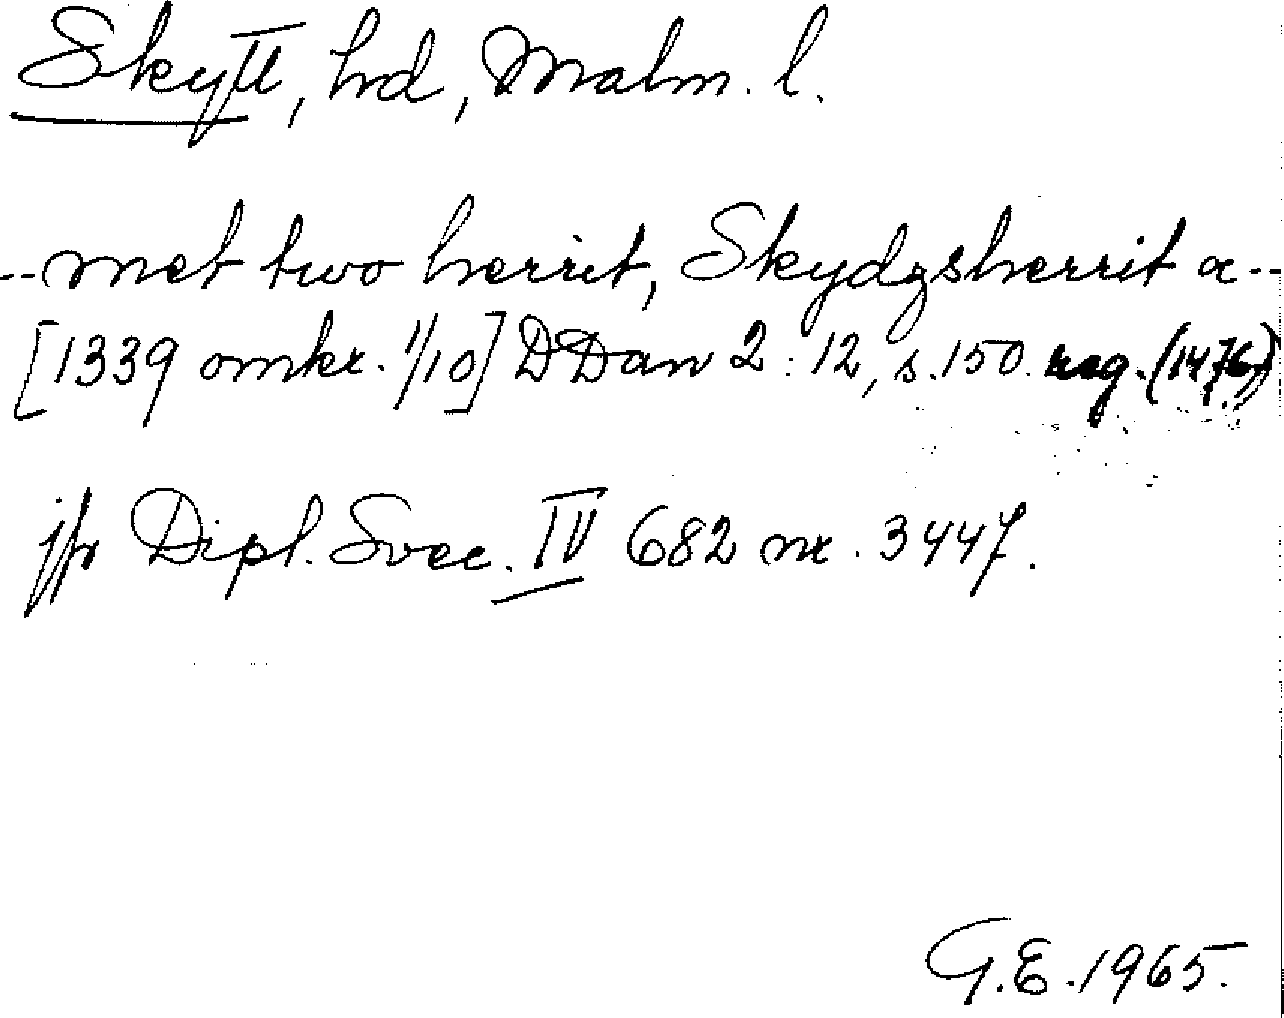 Skytt, hd, Malm. l.
--met two herrit, Skydzsherrit a--
[1339 omkr. 1/10] DDan 2:12, s.150. reg. (1476)
jfr Dipl. Svec. IV 682 nr. 3447.
G.E. 1965.